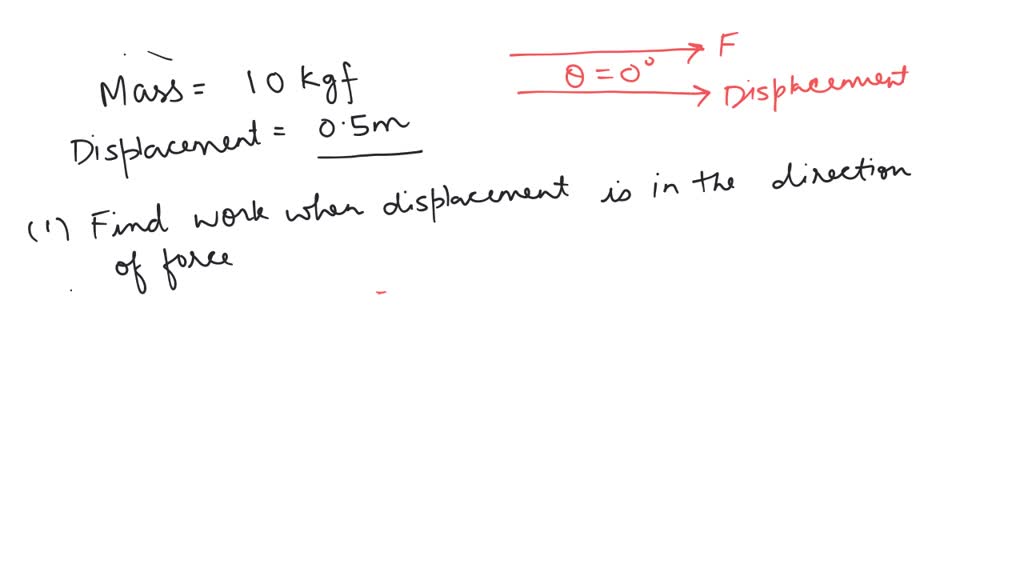 Mass = 10 kgf
Displacement = 0.5m
F
θ = 0°
Displacement
(1) Find work when displacement is in the direction
of force